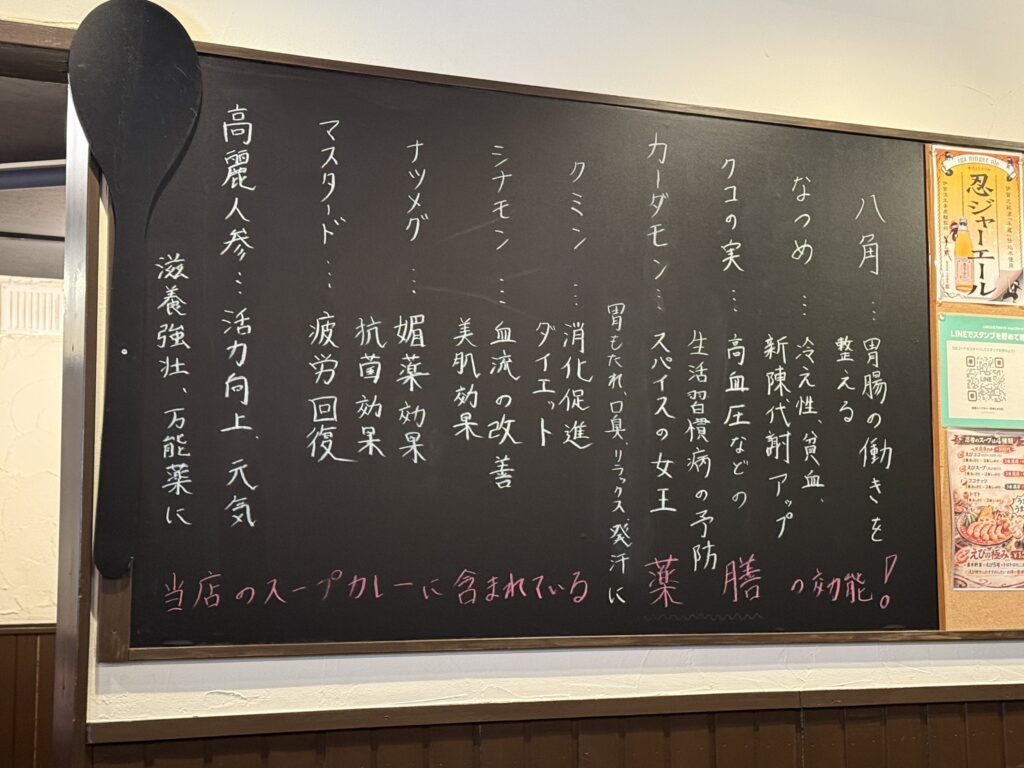 八角…胃腸の働きを
整える
なつめ…冷え性、貧血、
新陳代謝アップ
クコの実…高血圧などの
生活習慣病の予防
カーダモン…スパイスの女王
胃もたれ、口臭、リラックス、発汗に
クミン…消化促進
ダイエット
シナモン…血流の改善
美肌効果
ナツメグ…媚薬効果
抗菌効果
マスタード…疲労回復
高麗人参…活力向上、元気
滋養強壮、万能薬に
当店のスープカレーに含まれている薬膳の効能!
iga ninger ale
忍ジャーエール
LINEでスタンプを貯めて
LINE
忍者のスープは4種類
えびスープ
ココナッツ
トマト
えびの極み